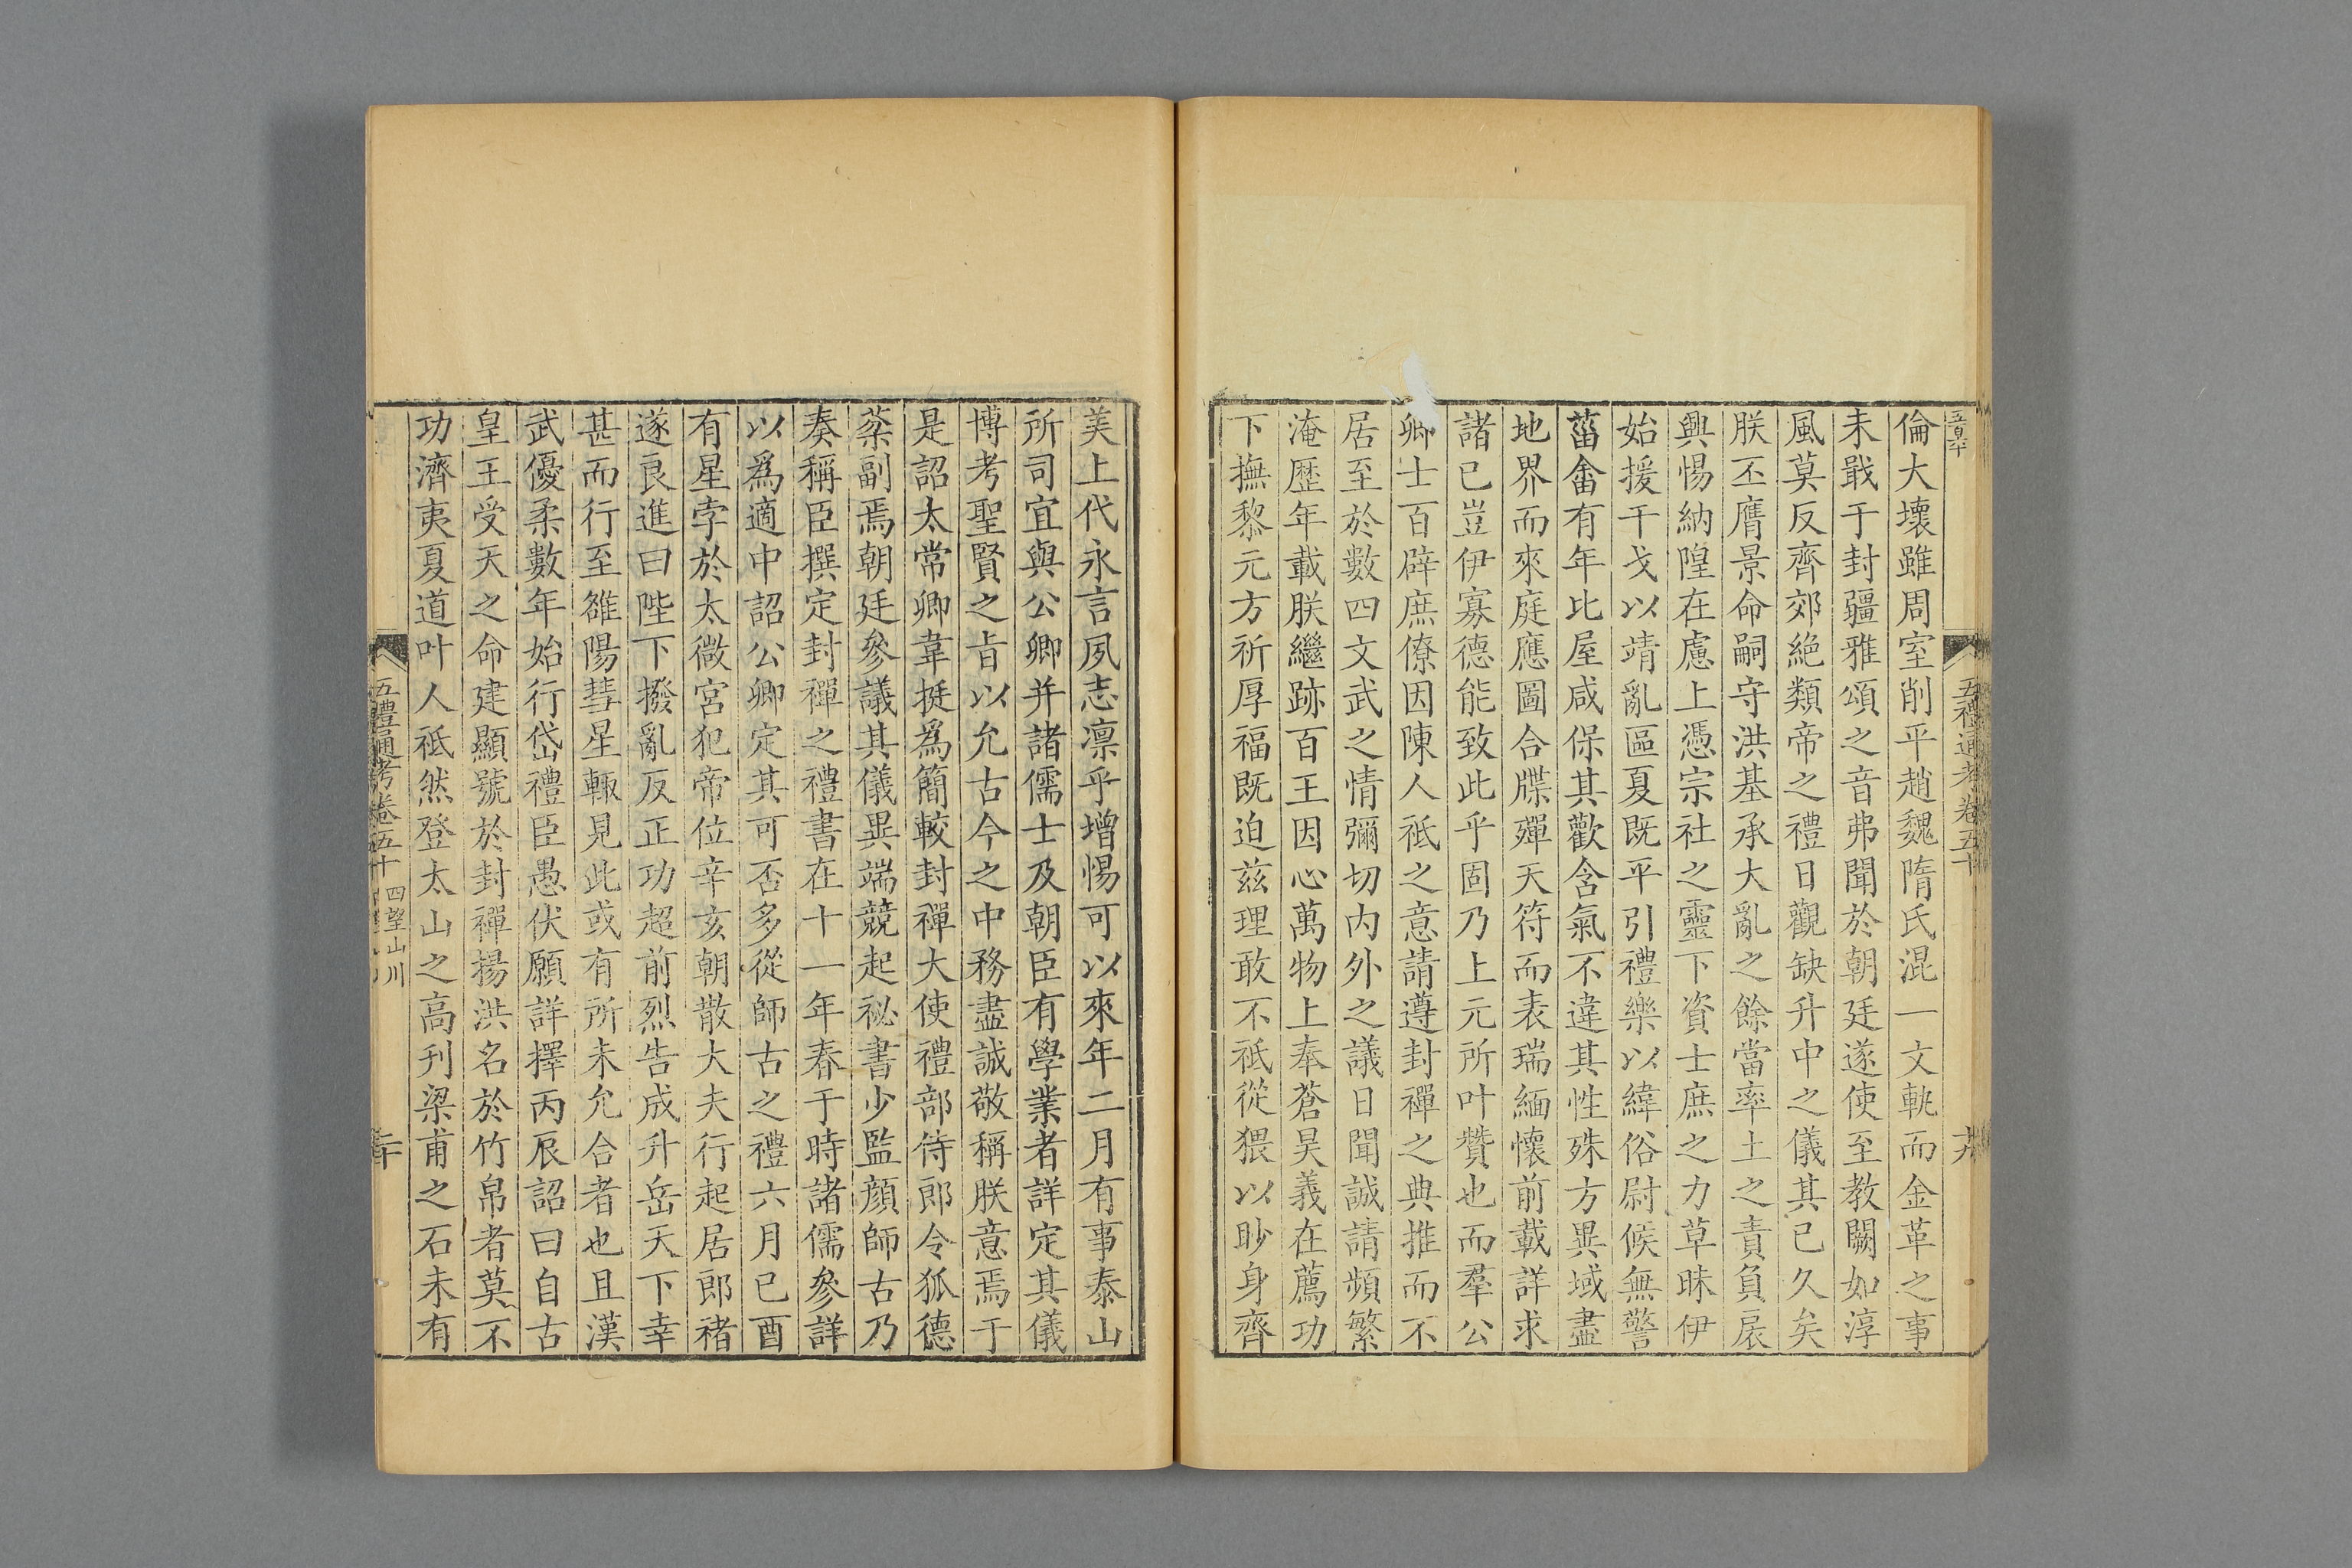 五禮通考卷五十
倫大壞雖周室削平趙魏隋氏混一文軌而金革之事
未戢于封疆雅頌之音弗聞於朝廷遂使至教闕如淳
風莫反齊郊絕類帝之禮日觀缺升中之儀其已久矣
朕丕膺景命嗣守洪基承大亂之餘當率土之責負扆
興惕納隍在慮上憑宗社之靈下資士庶之力草昧伊
始援干戈以靖亂區夏既平引禮樂以緯俗尉候無警
菑畬有年比屋咸保其歡含氣不違其性殊方異域盡
地界而來庭應圖合牒殫天符而表瑞緬懷前載詳求
諸已豈伊寡德能致此乎固乃上元所叶贊也而羣公
卿士百辟庶僚因陳人祗之意請遵封禪之典推而不
居至於數四文武之情彌切内外之議日聞誠請頻繁
淹歷年載朕繼跡百王因心萬物上奉蒼昊義在薦功
下撫黎元方祈厚福既迫茲理敢不祗從猥以眇身齊
美上代永言夙志凛乎增惕可以來年二月有事泰山
所司宜與公卿并諸儒士及朝臣有學業者詳定其儀
博考聖賢之旨以允古今之中務盡誠敬稱朕意焉于
是詔太常卿韋挺為簡較封禪大使禮部侍郎令狐德
棻副焉朝廷參議其儀異端競起祕書少監顔師古乃
奏稱臣撰定封禪之禮書在十一年春于時諸儒參詳
以爲適中詔公卿定其可否多從師古之禮六月已酉
有星孛於太微宮犯帝位辛亥朝散大夫行起居郎褚
遂良進曰陛下撥亂反正功超前烈告成升岳天下幸
甚而行至雒陽彗星輙見此或有所未允合者也且漢
武優柔數年始行岱禮臣愚伏願詳擇丙辰詔曰自古
皇王受天之命建顯號於封禪揚洪名於竹帛者莫不
功濟夷夏道叶人祗然登太山之高刋梁甫之石未有
五禮通考卷五十 四望山川 二十